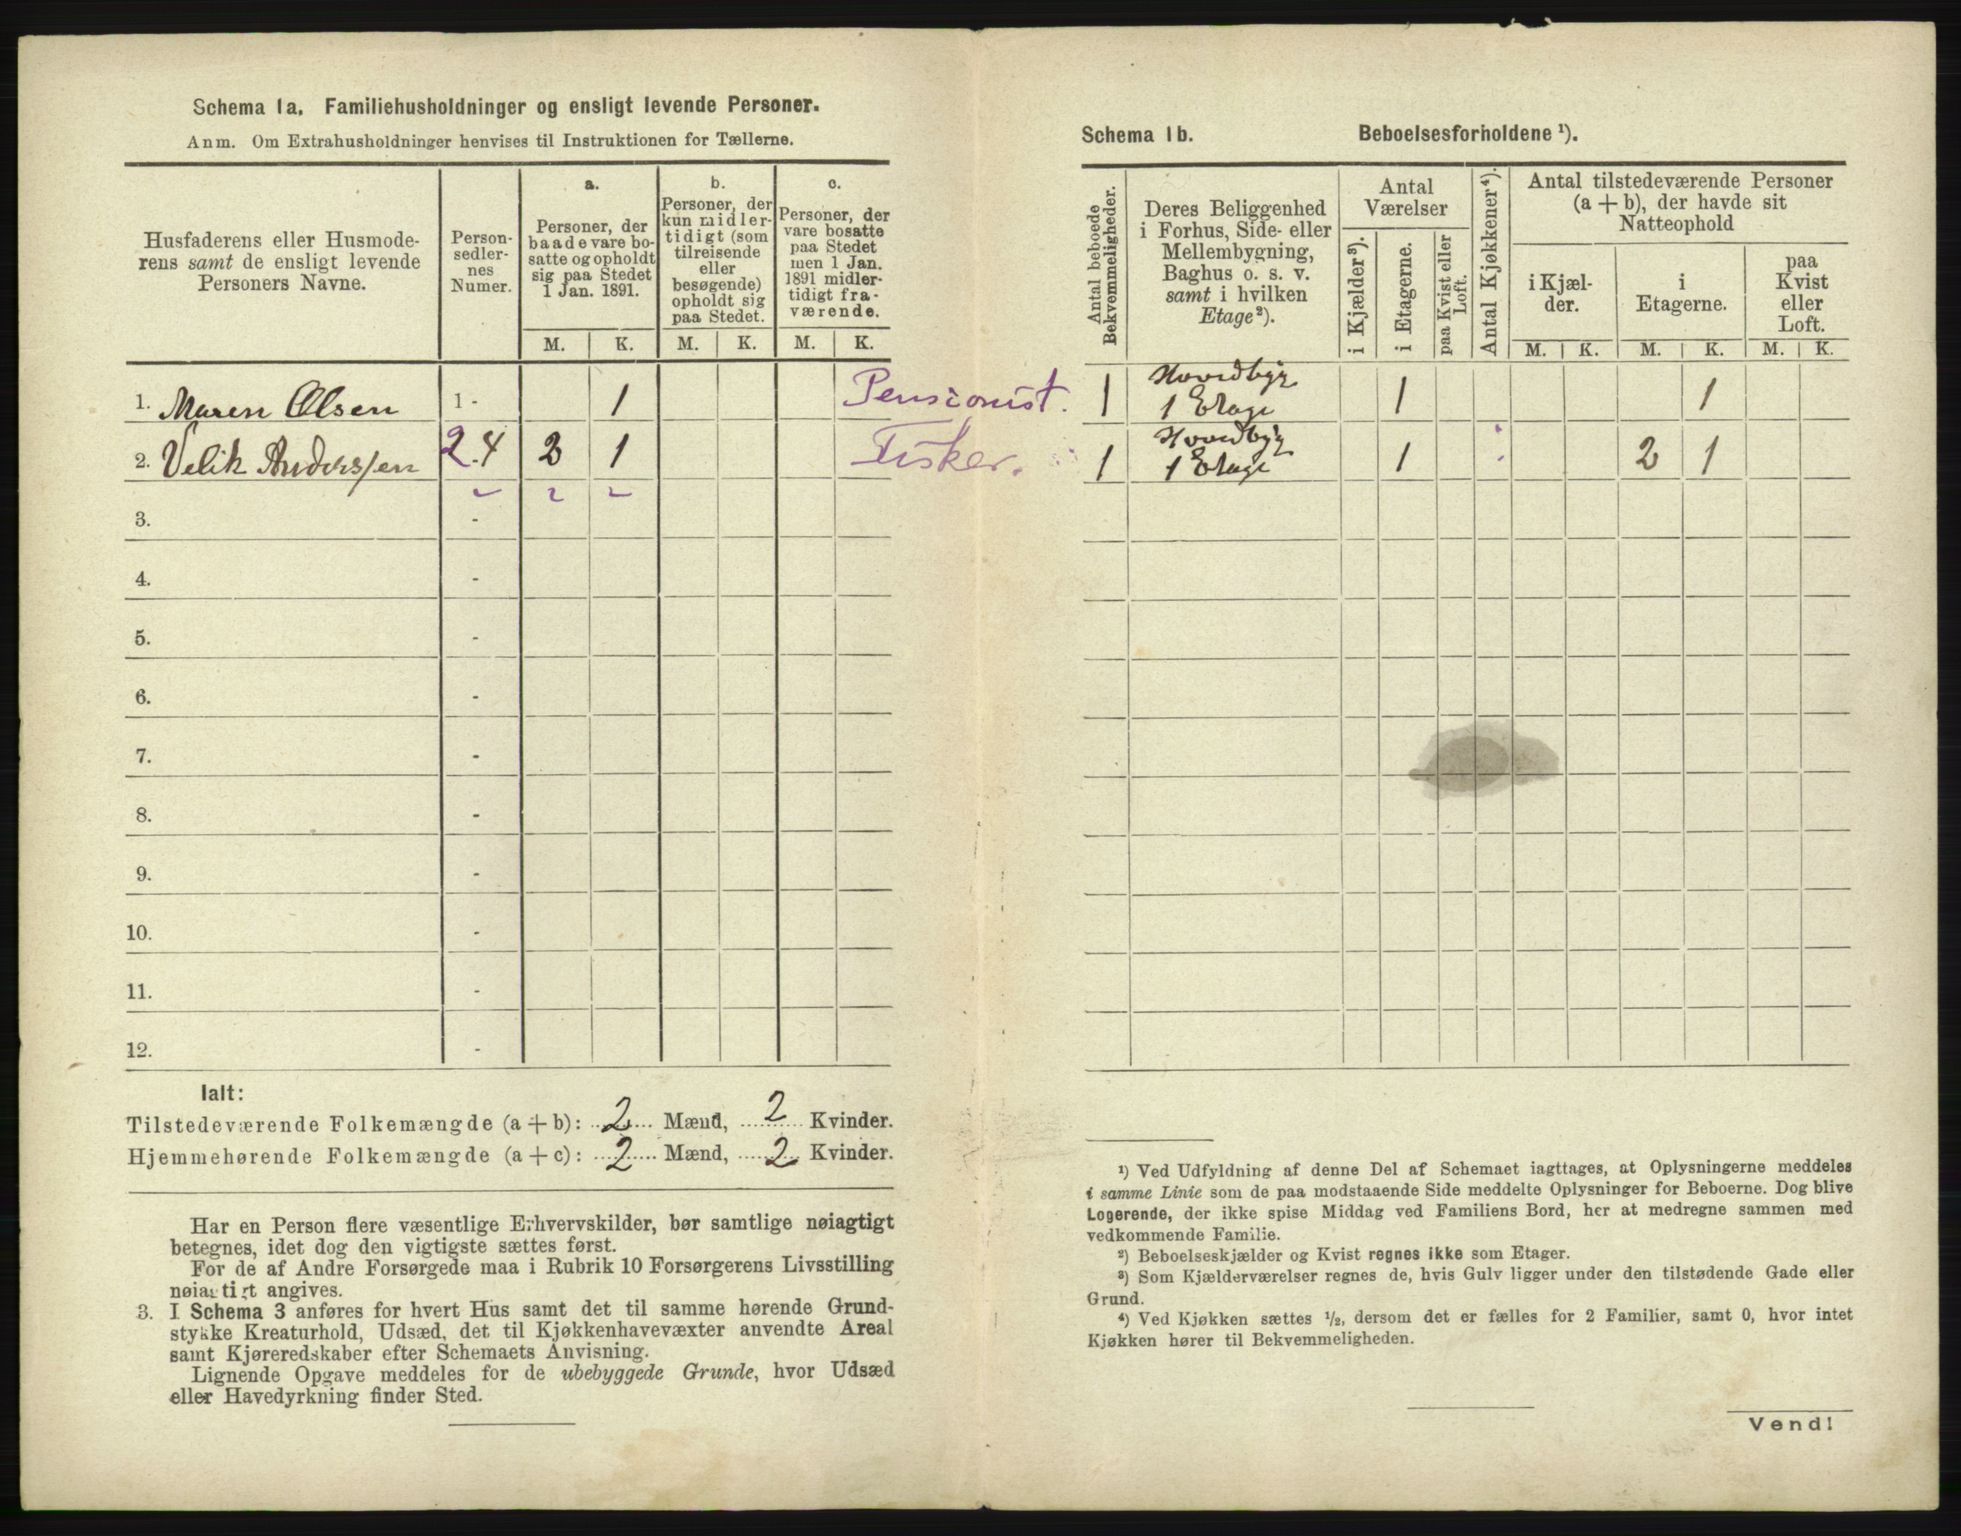 Schema 1a. Familiehusholdninger og ensligt levende Personer.
Anm. Om Extrahusholdninger henvises til Instruktionen for Tællerne.
Husfaderens eller Husmode-
rens samt de ensligt levende
Personers Navne.
Person-
sedler-
nes
Numer.
a.
Personer, der
baade vare bo-
satte og opholdt
sig paa Stedet
1 Jan. 1891.
b.
Personer, der
kun midler-
tidigt (som
tilreisende
eller
besøgende)
opholdt sig
paa Stedet.
c.
Personer, der
vare bosatte
paa Stedet
men 1 Jan.
1891 midler-
tidigt fra-
værende.
M. K. M. K. M. K.
1. Maren Olsen 1 - 1 Pensionist.
2. Velik Anderssen 2.4 2 1 Fisker.
3. -
4. -
5. -
6. -
7. -
8. -
9. -
10. -
11. -
12. -
Ialt:
Tilstedeværende Folkemængde (a + b): 2 Mænd, 2 Kvinder.
Hjemmehørende Folkemængde (a + c): 2 Mænd, 2 Kvinder.
Har en Person flere væsentlige Erhvervskilder, bør samtlige nøiagtigt
betegnes, idet dog den vigtigste sættes først.
For de af Andre Forsørgede maa i Rubrik 10 Forsørgerens Livsstilling
nøiagtigt angives.
3. I Schema 3 anføres for hvert Hus samt det til samme hørende Grund-
stykke Kreaturhold, Udsæd, det til Kjøkkenhavevæxter anvendte Areal
samt Kjøreredskaber efter Schemaets Anvisning.
Lignende Opgave meddeles for de ubebyggede Grunde, hvor Udsæd
eller Havedyrkning finder Sted.
Schema 1b. Beboelsesforholdene ¹).
Antal beboede
Bekvemmeligheder.
Deres Beliggenhed
i Forhus, Side- eller
Mellembygning,
Baghus o. s. v.
samt i hvilken
Etage²).
Antal
Værelser
i Kjælder³).
i Etagerne.
paa Kvist eller
Loft.
Antal Kjøkkener⁴).
Antal tilstedeværende Personer
(a + b), der havde sit
Natteophold
i Kjæl-
der.
i
Etagerne.
paa
Kvist
eller
Loft.
M. K. M. K. M. K.
1 Hovedbyg 1 1
1 Etage
1 Hovedbyg 1 2 1
1 Etage
¹) Ved Udfyldning af denne Del af Schemaet iagttages, at Oplysningerne meddeles
i samme Linie som de paa modstaaende Side meddelte Oplysninger for Beboerne. Dog blive
Logerende, der ikke spise Middag ved Familiens Bord, her at medregne sammen med
vedkommende Familie.
²) Beboelseskjælder og Kvist regnes ikke som Etager.
³) Som Kjælderværelser regnes de, hvis Gulv ligger under den tilstødende Gade eller
Grund.
⁴) Ved Kjøkken sættes ½, dersom det er fælles for 2 Familier, samt 0, hvor intet
Kjøkken hører til Bekvemmeligheden.
Vend!